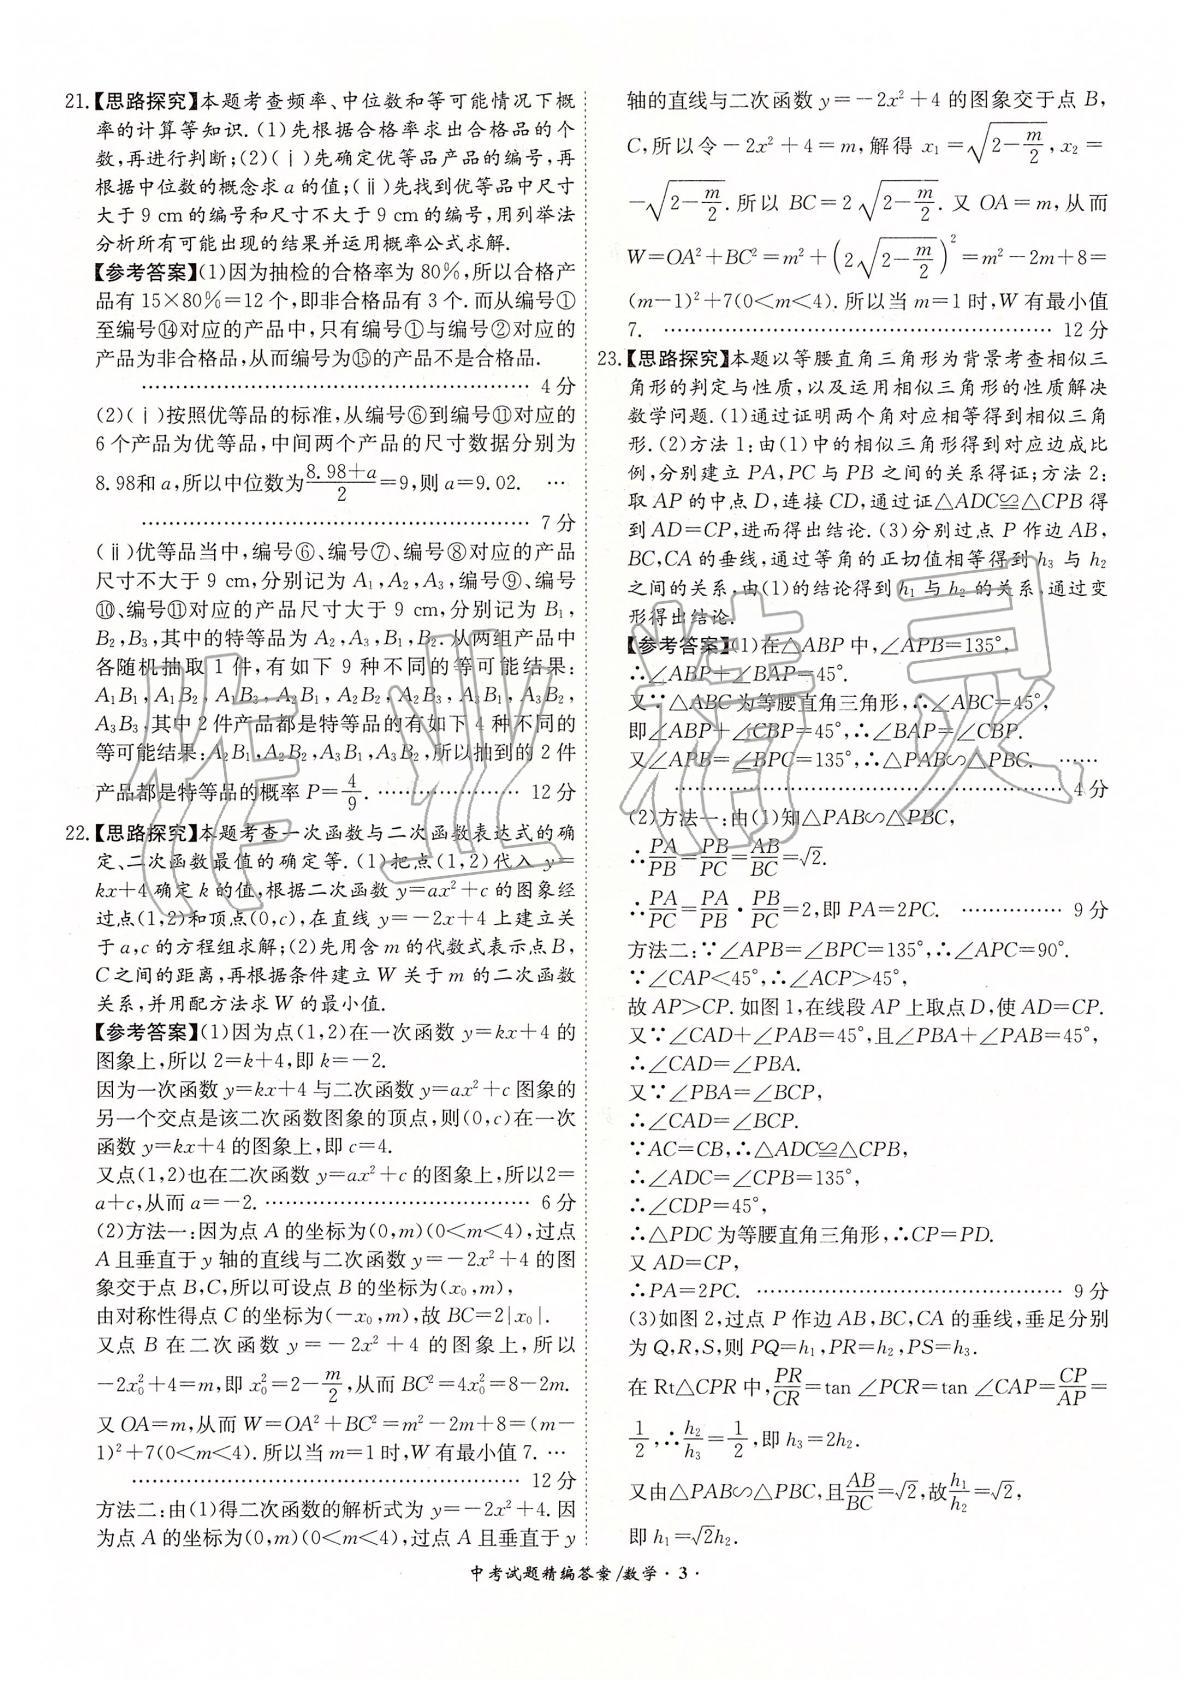 21.【思路探究】本题考查频率、中位数和等可能情况下概
率的计算等知识.(1)先根据合格率求出合格品的个
数,再进行判断;(2)(ⅰ)先确定优等品产品的编号,再
根据中位数的概念求 a 的值;(ⅱ)先找到优等品中尺寸
大于 9 cm 的编号和尺寸不大于 9 cm 的编号,用列举法
分析所有可能出现的结果并运用概率公式求解.
【参考答案】(1)因为抽检的合格率为 80%,所以合格产
品有 15×80%=12 个,即非合格品有 3 个.而从编号①
至编号⑭对应的产品中,只有编号①与编号②对应的
产品为非合格品,从而编号为⑮的产品不是合格品.
………………………………………………… 4 分
(2)(ⅰ)按照优等品的标准,从编号⑥到编号⑪对应的
6 个产品为优等品,中间两个产品的尺寸数据分别为
8.98和 a,所以中位数为(8.98+a)/2=9,则 a=9.02. …
………………………………………………… 7 分
(ⅱ)优等品当中,编号⑥、编号⑦、编号⑧对应的产品
尺寸不大于 9 cm,分别记为 A₁,A₂,A₃,编号⑨、编号
⑩、编号⑪对应的产品尺寸大于 9 cm,分别记为 B₁,
B₂,B₃,其中的特等品为 A₂,A₃,B₁,B₂.从两组产品中
各随机抽取 1 件,有如下 9 种不同的等可能结果:
A₁B₁,A₁B₂,A₁B₃,A₂B₁,A₂B₂,A₂B₃,A₃B₁,A₃B₂,
A₃B₃,其中 2 件产品都是特等品的有如下 4 种不同的
等可能结果:A₂B₁,A₂B₂,A₃B₁,A₃B₂,所以抽到的 2 件
产品都是特等品的概率 P=4/9. ………………… 12 分
22.【思路探究】本题考查一次函数与二次函数表达式的确
定、二次函数最值的确定等.(1)把点(1,2)代入 y=
kx+4 确定 k 的值,根据二次函数 y=ax²+c 的图象经
过点(1,2)和顶点(0,c),在直线 y=-2x+4 上建立关
于 a,c 的方程组求解;(2)先用含 m 的代数式表示点 B,
C 之间的距离,再根据条件建立 W 关于 m 的二次函数
关系,并用配方法求 W 的最小值.
【参考答案】(1)因为点(1,2)在一次函数 y=kx+4 的
图象上,所以 2=k+4,即 k=-2.
因为一次函数 y=kx+4 与二次函数 y=ax²+c 图象的
另一个交点是该二次函数图象的顶点,则(0,c)在一次
函数 y=kx+4 的图象上,即 c=4.
又点(1,2)也在二次函数 y=ax²+c 的图象上,所以2=
a+c,从而 a=-2. ………………………………… 6 分
(2)方法一:因为点 A 的坐标为(0,m)(0<m<4),过点
A 且垂直于 y 轴的直线与二次函数 y=-2x²+4 的图
象交于点 B,C,所以可设点 B 的坐标为(x₀,m),
由对称性得点 C 的坐标为(-x₀,m),故 BC=2|x₀|.
又点 B 在二次函数 y=-2x²+4 的图象上,所以
-2x₀²+4=m,即 x₀²=2-m/2,从而 BC²=4x₀²=8-2m.
又 OA=m,从而 W=OA²+BC²=m²-2m+8=(m-
1)²+7(0<m<4).所以当 m=1 时,W 有最小值 7. …
………………………………………………… 12 分
方法二:由(1)得二次函数的解析式为 y=-2x²+4.因
为点 A 的坐标为(0,m)(0<m<4),过点 A 且垂直于 y
轴的直线与二次函数 y=-2x²+4 的图象交于点 B,
C,所以令-2x²+4=m,解得 x₁=√(2-m/2),x₂=
-√(2-m/2).所以 BC=2√(2-m/2).又 OA=m,从而
W=OA²+BC²=m²+(2√(2-m/2))²=m²-2m+8=
(m-1)²+7(0<m<4).所以当 m=1 时,W 有最小值
7. ………………………………………………… 12 分
23.【思路探究】本题以等腰直角三角形为背景考查相似三
角形的判定与性质,以及运用相似三角形的性质解决
数学问题.(1)通过证明两个角对应相等得到相似三角
形.(2)方法 1:由(1)中的相似三角形得到对应边成比
例,分别建立 PA,PC 与 PB 之间的关系得证;方法 2:
取 AP 的中点 D,连接 CD,通过证△ADC≌△CPB 得
到 AD=CP,进而得出结论.(3)分别过点 P 作边 AB,
BC,CA 的垂线,通过等角的正切值相等得到 h₃ 与 h₂
之间的关系,由(1)的结论得到 h₁ 与 h₂ 的关系,通过变
形得出结论.
【参考答案】(1)在△ABP 中,∠APB=135°,
∴∠ABP+∠BAP=45°.
又∵△ABC 为等腰直角三角形,∴∠ABC=45°,
即∠ABP+∠CBP=45°,∴∠BAP=∠CBP.
又∠APB=∠BPC=135°,∴△PAB∽△PBC. ……
………………………………………………… 4 分
(2)方法一:由(1)知△PAB∽△PBC,
∴PA/PB=PB/PC=AB/BC=√2.
∴PA/PC=PA/PB·PB/PC=2,即 PA=2PC. …………… 9 分
方法二:∵∠APB=∠BPC=135°,∴∠APC=90°.
∵∠CAP<45°,∴∠ACP>45°,
故 AP>CP.如图 1,在线段 AP 上取点 D,使 AD=CP.
又∵∠CAD+∠PAB=45°,且∠PBA+∠PAB=45°,
∴∠CAD=∠PBA.
又∵∠PBA=∠BCP,
∴∠CAD=∠BCP.
∵AC=CB,∴△ADC≌△CPB,
∴∠ADC=∠CPB=135°,
∴∠CDP=45°,
∴△PDC 为等腰直角三角形,∴CP=PD.
又 AD=CP,
∴PA=2PC. ……………………………………… 9 分
(3)如图 2,过点 P 作边 AB,BC,CA 的垂线,垂足分别
为 Q,R,S,则 PQ=h₁,PR=h₂,PS=h₃.
在 Rt△CPR 中,PR/CR=tan ∠PCR=tan ∠CAP=CP/AP=
1/2,∴h₂/h₃=1/2,即 h₃=2h₂.
又由△PAB∽△PBC,且AB/BC=√2,故h₁/h₂=√2,
即 h₁=√2h₂.
中考试题精编答案/数学·3·
作业精灵